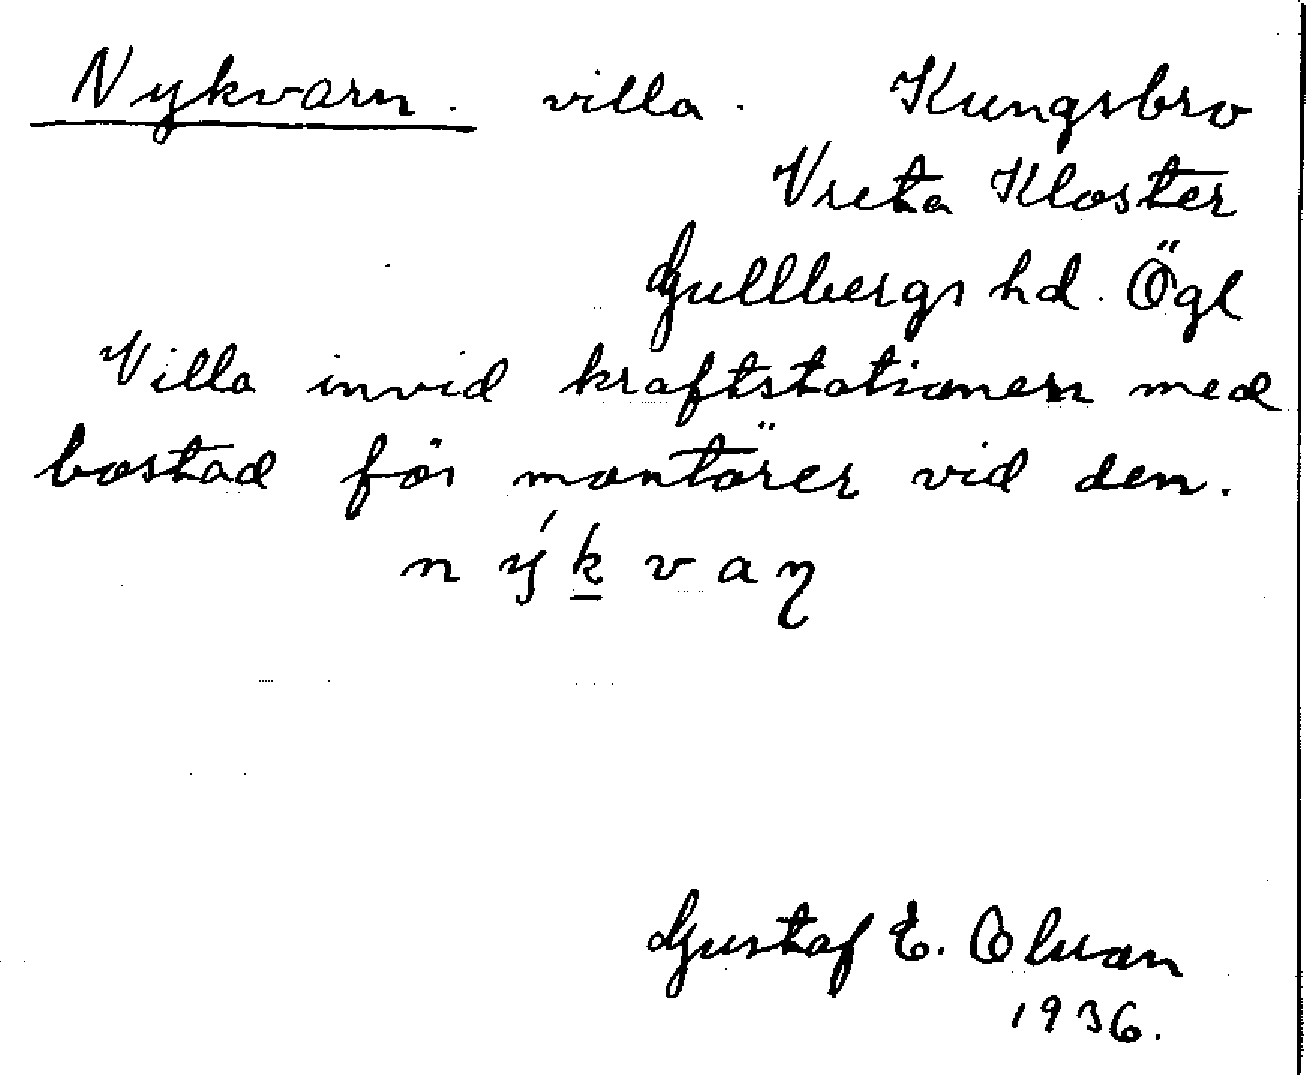 Nykvarn. villa. Kungsbro
Vreta Kloster
Gullbergs hd. Ögl
Villa invid kraftstationen med
bostad för montörer vid den.
n ý k̲ v a ɳ
Gustaf E. Olsson
1936.